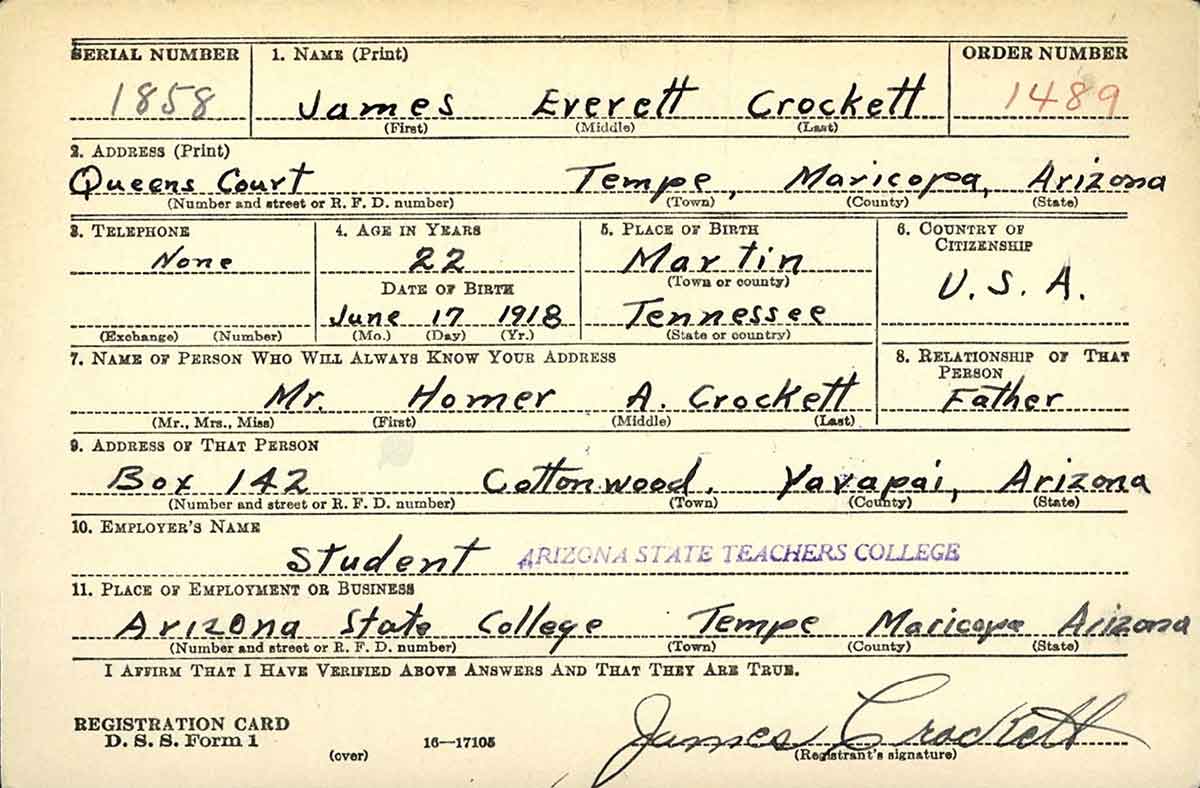 SERIAL NUMBER 1. NAME (Print) ORDER NUMBER
1858 James Everett Crockett 1489
(First) (Middle) (Last)
2. ADDRESS (Print)
Queens Court Tempe, Maricopa, Arizona
(Number and street or R. F. D. number) (Town) (County) (State)
3. TELEPHONE 4. AGE IN YEARS 5. PLACE OF BIRTH 6. COUNTRY OF CITIZENSHIP
None 22 Martin U. S. A.
DATE OF BIRTH (Town or county)
June 17 1918 Tennessee
(Exchange) (Number) (Mo.) (Day) (Yr.) (State or country)
7. NAME OF PERSON WHO WILL ALWAYS KNOW YOUR ADDRESS 8. RELATIONSHIP OF THAT PERSON
Mr. Homer A. Crockett Father
(Mr., Mrs., Miss) (First) (Middle) (Last)
9. ADDRESS OF THAT PERSON
Box 142 Cottonwood. Yavapai, Arizona
(Number and street or R. F. D. number) (Town) (County) (State)
10. EMPLOYER'S NAME
Student ARIZONA STATE TEACHERS COLLEGE
11. PLACE OF EMPLOYMENT OR BUSINESS
Arizona State College Tempe Maricopa Arizona
(Number and street or R. F. D. number) (Town) (County) (State)
I AFFIRM THAT I HAVE VERIFIED ABOVE ANSWERS AND THAT THEY ARE TRUE.
REGISTRATION CARD
D. S. S. Form 1 (over) 16—17105 James Crockett
(Registrant's signature)